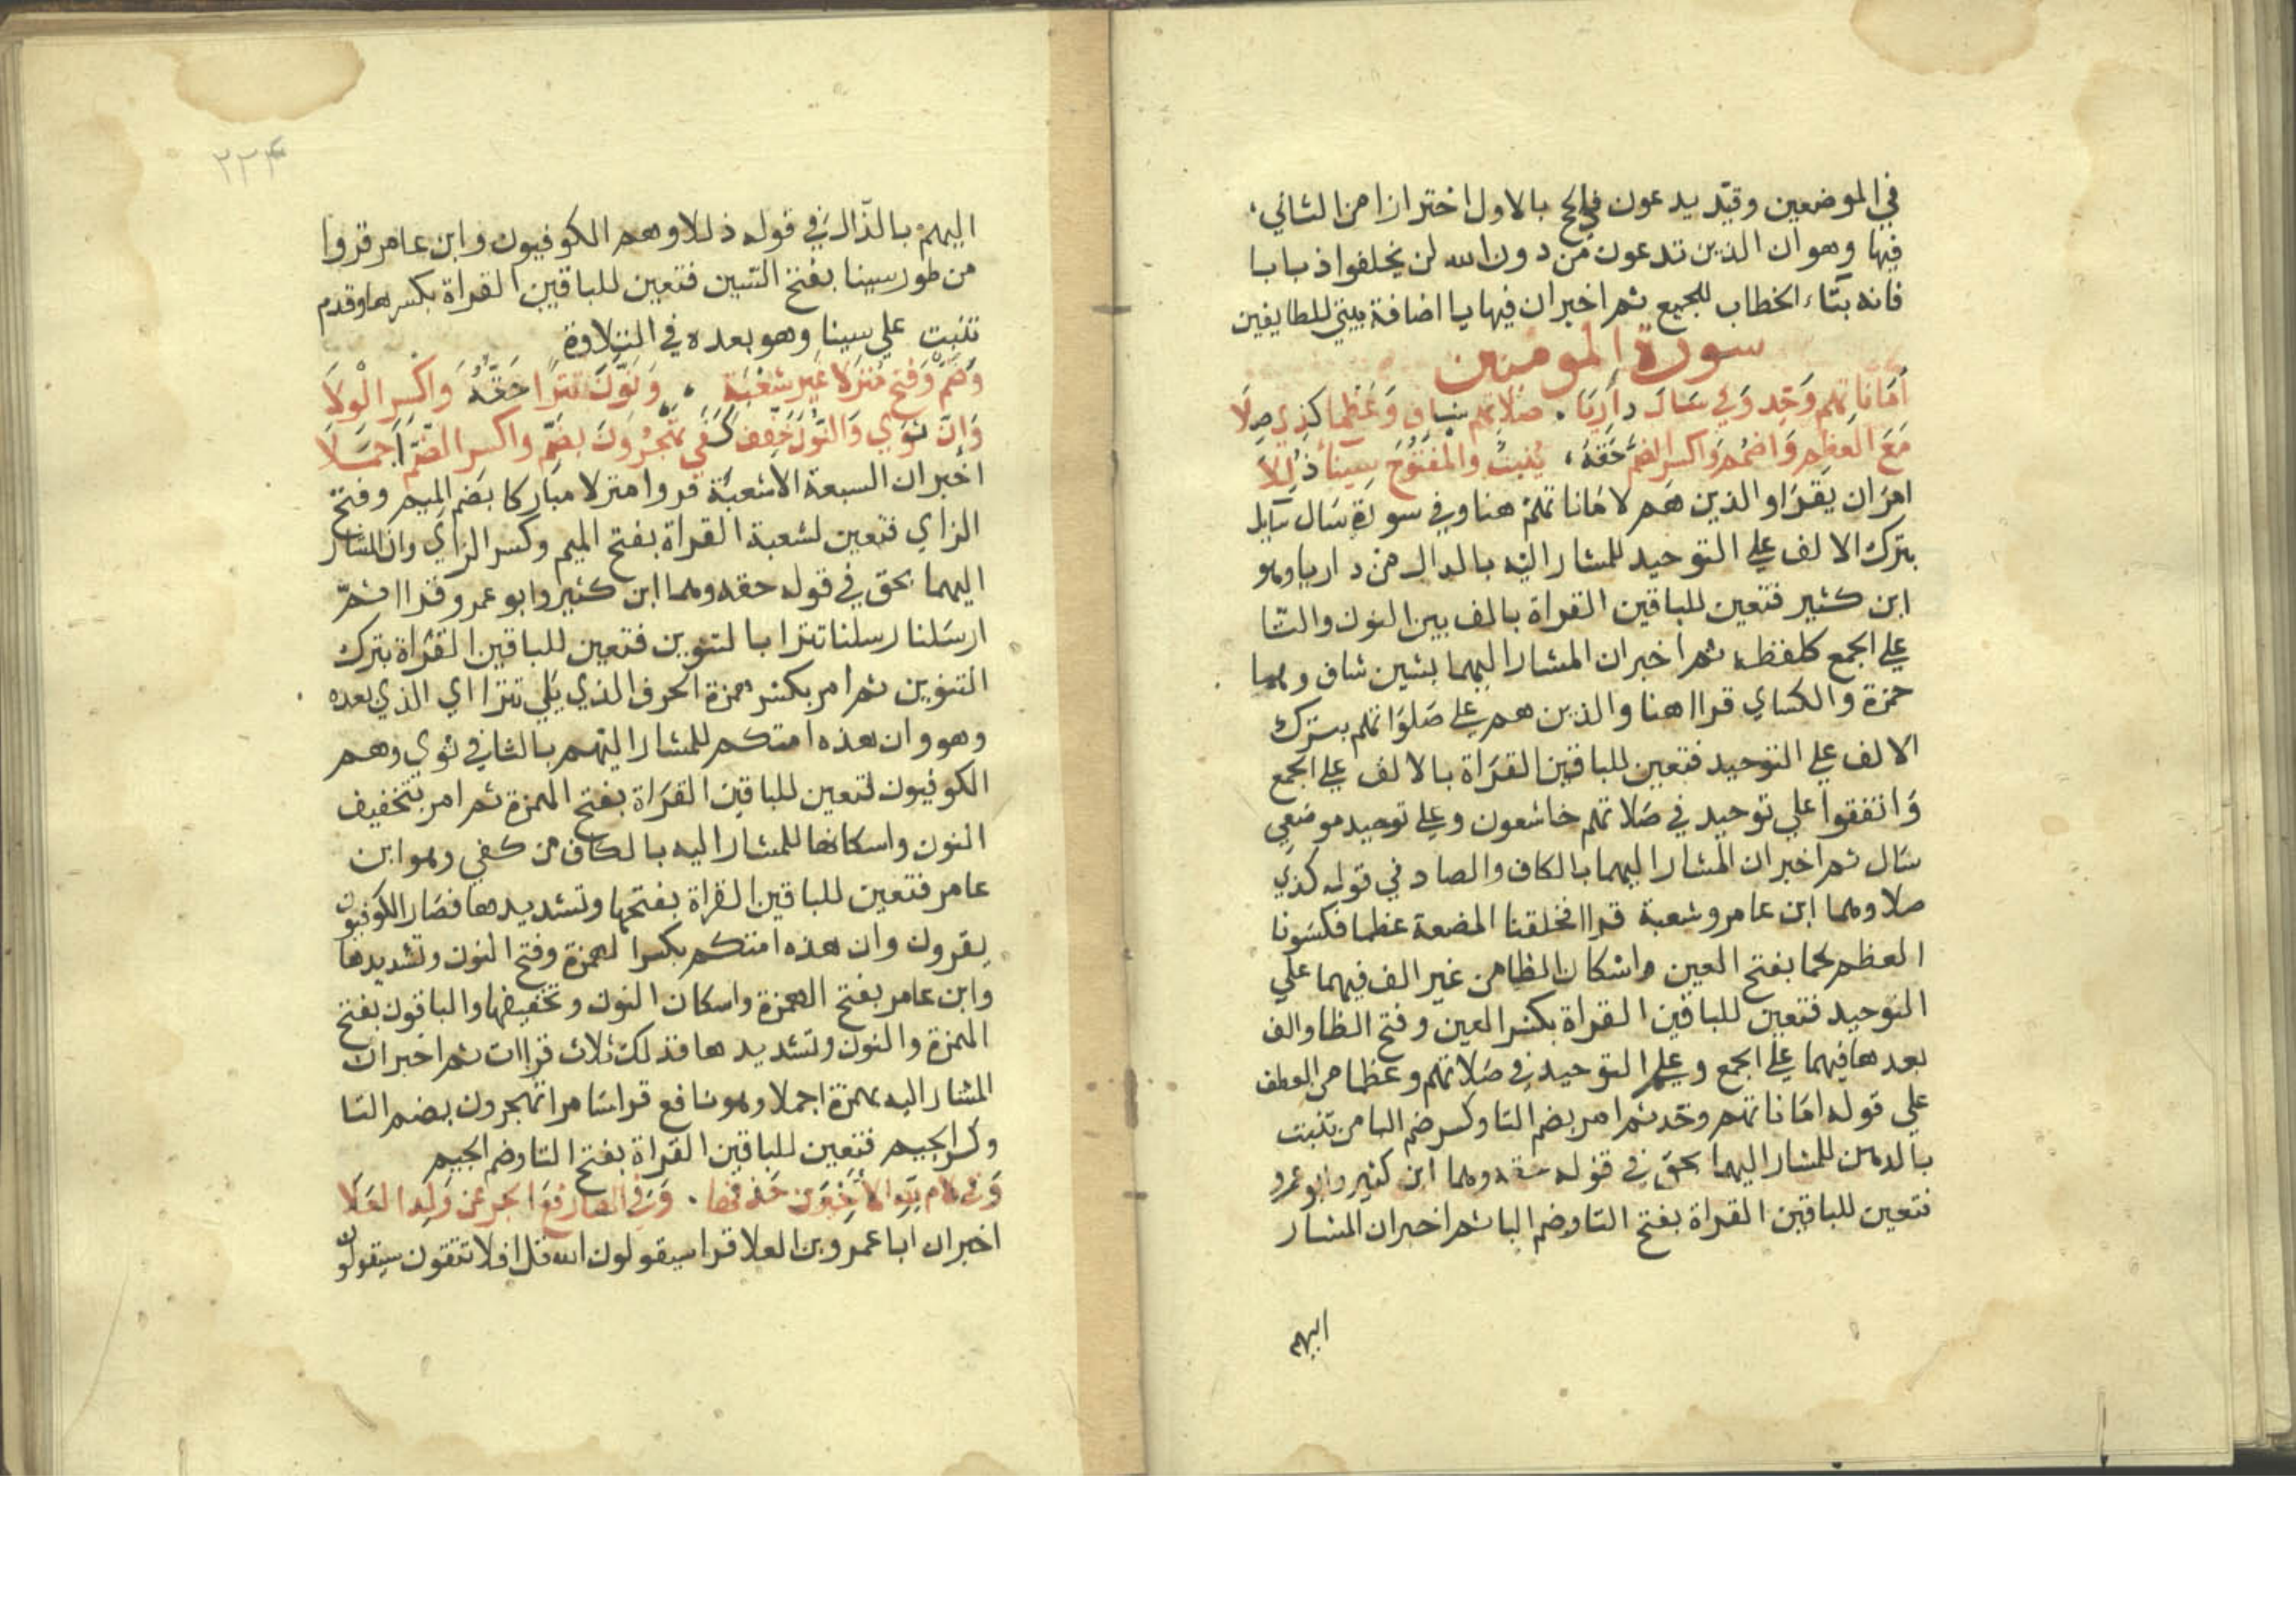 في الموضعين وقيد يدعون في الحج بالاول احترازا من الثاني
فيها وهو ان الذين تدعون من دون الله لن يخلقوا ذبابا
فانه بتاء الخطاب للجميع ثم اخبر ان فيها يا اضافة بيتي للطايفين
سورة المومنين
أَمَانَاتِهِم وَحِّد وَفي سَالَ دَارِيَا . صَلاتهم شاف وَعَظما كذي صِلَا
مَعَ العَظمِ وَاضمم وَاكسر الضَّمَّ حَقُّهُ ، بِتُنبِتُ وَالمَفتُوحُ سِينَاءَ ذُلِّلَا
امر ان يقرا والذين هم لاماناتهم هنا وفي سورة سال سايل
بترك الالف علي التوحيد للمشار اليه بالدال من داريا وهو
ابن كثير فتعين للباقين القراة بالف بين النون والتا
علي الجمع كلفظه ثم اخبر ان المشار اليهما بشين شاف وهما
حمزة والكساي قراا هنا والذين هم علي صلواتهم بترك
الالف علي التوحيد فتعين للباقين القراة بالالف علي الجمع
واتفقوا علي توحيد في صلاتهم خاشعون وعلي توحيد موضعي
سال ثم اخبر ان المشار اليهما بالكاف والصاد في قوله كذي
صلا وهما ابن عامر وشعبة قراا فخلقنا المضغة عظما فكسونا
العظم لحما بفتح العين واسكان الظا من غير الف فيهما علي
التوحيد فتعين للباقين القراة بكسر العين وفتح الظا والف
بعدها فيهما علي الجمع وعلم التوحيد في صلاتهم وعظما من العطف
علي قوله اماناتهم وحد ثم امر بضم التا وكسر ضم البا من تنبت
بالدهن للمشار اليهما بحق في قوله حقه وهما ابن كثير وابو عمرو
فتعين للباقين القراة بفتح التا وضم البا ثم اخبر ان المشار
اليهم
٢٢٤
اليهم بالذال في قوله ذللا وهم الكوفيون وابن عامر قروا
من طور سينا بفتح السين فتعين للباقين القراة بكسرها وقدم
تنبت علي سينا وهو بعده في التلاوة
وَضَمٌّ وَفَتح مَنزلًا غَير شُعْبَة ، وَنَوَّنَ تَترًا حَقُّهُ وَاكْسِرِ الْوِلَا
وَانَّ ثوي وَالنونَ خَفِّف كَفَي تَهْجُرُونَ بضَمٍّ واكسر الضَّمَّ اَجمَلَا
اخبر ان السبعة الا شعبة قروا منزلا مباركا بضم الميم وفتح
الزاي فتعين لشعبة القراة بفتح الميم وكسر الزاي وان المشار
اليهما بحق في قوله حقه وهما ابن كثير وابو عمرو قراا ثم
ارسلنا رسلنا تترا بالتنوين فتعين للباقين القراة بترك
التنوين ثم امر بكسر همزة الحرف الذي يلي تترا اي الذي بعده
وهو وان هذه امتكم للمشار اليهم بالثا في ثوي وهم
الكوفيون فتعين للباقين القراة بفتح الهمزة ثم امر بتخفيف
النون واسكانها للمشار اليه بالكاف من كفي وهو ابن
عامر فتعين للباقين القراة بفتحها وتشديدها فصار الكوفيون
يقرون وان هذه امتكم بكسر الهمزة وفتح النون وتشديدها
وابن عامر بفتح الهمزة واسكان النون وتخفيفها والباقون بفتح
الهمزة والنون وتشديدها فذلك ثلاث قراات ثم اخبر ان
المشار اليه بهمزة اجملا وهو نافع قرا سامرا تهجرون بضم التا
وكسر الجيم فتعين للباقين القراة بفتح التا وضم الجيم
وَفي لام لله الاخيرين حَذفها . وَفي الها رفع الجر عَن وَلد العَلَا
اخبر ان ابا عمرو بن العلا قرا سيقولون الله قل افلا تتقون سيقولون